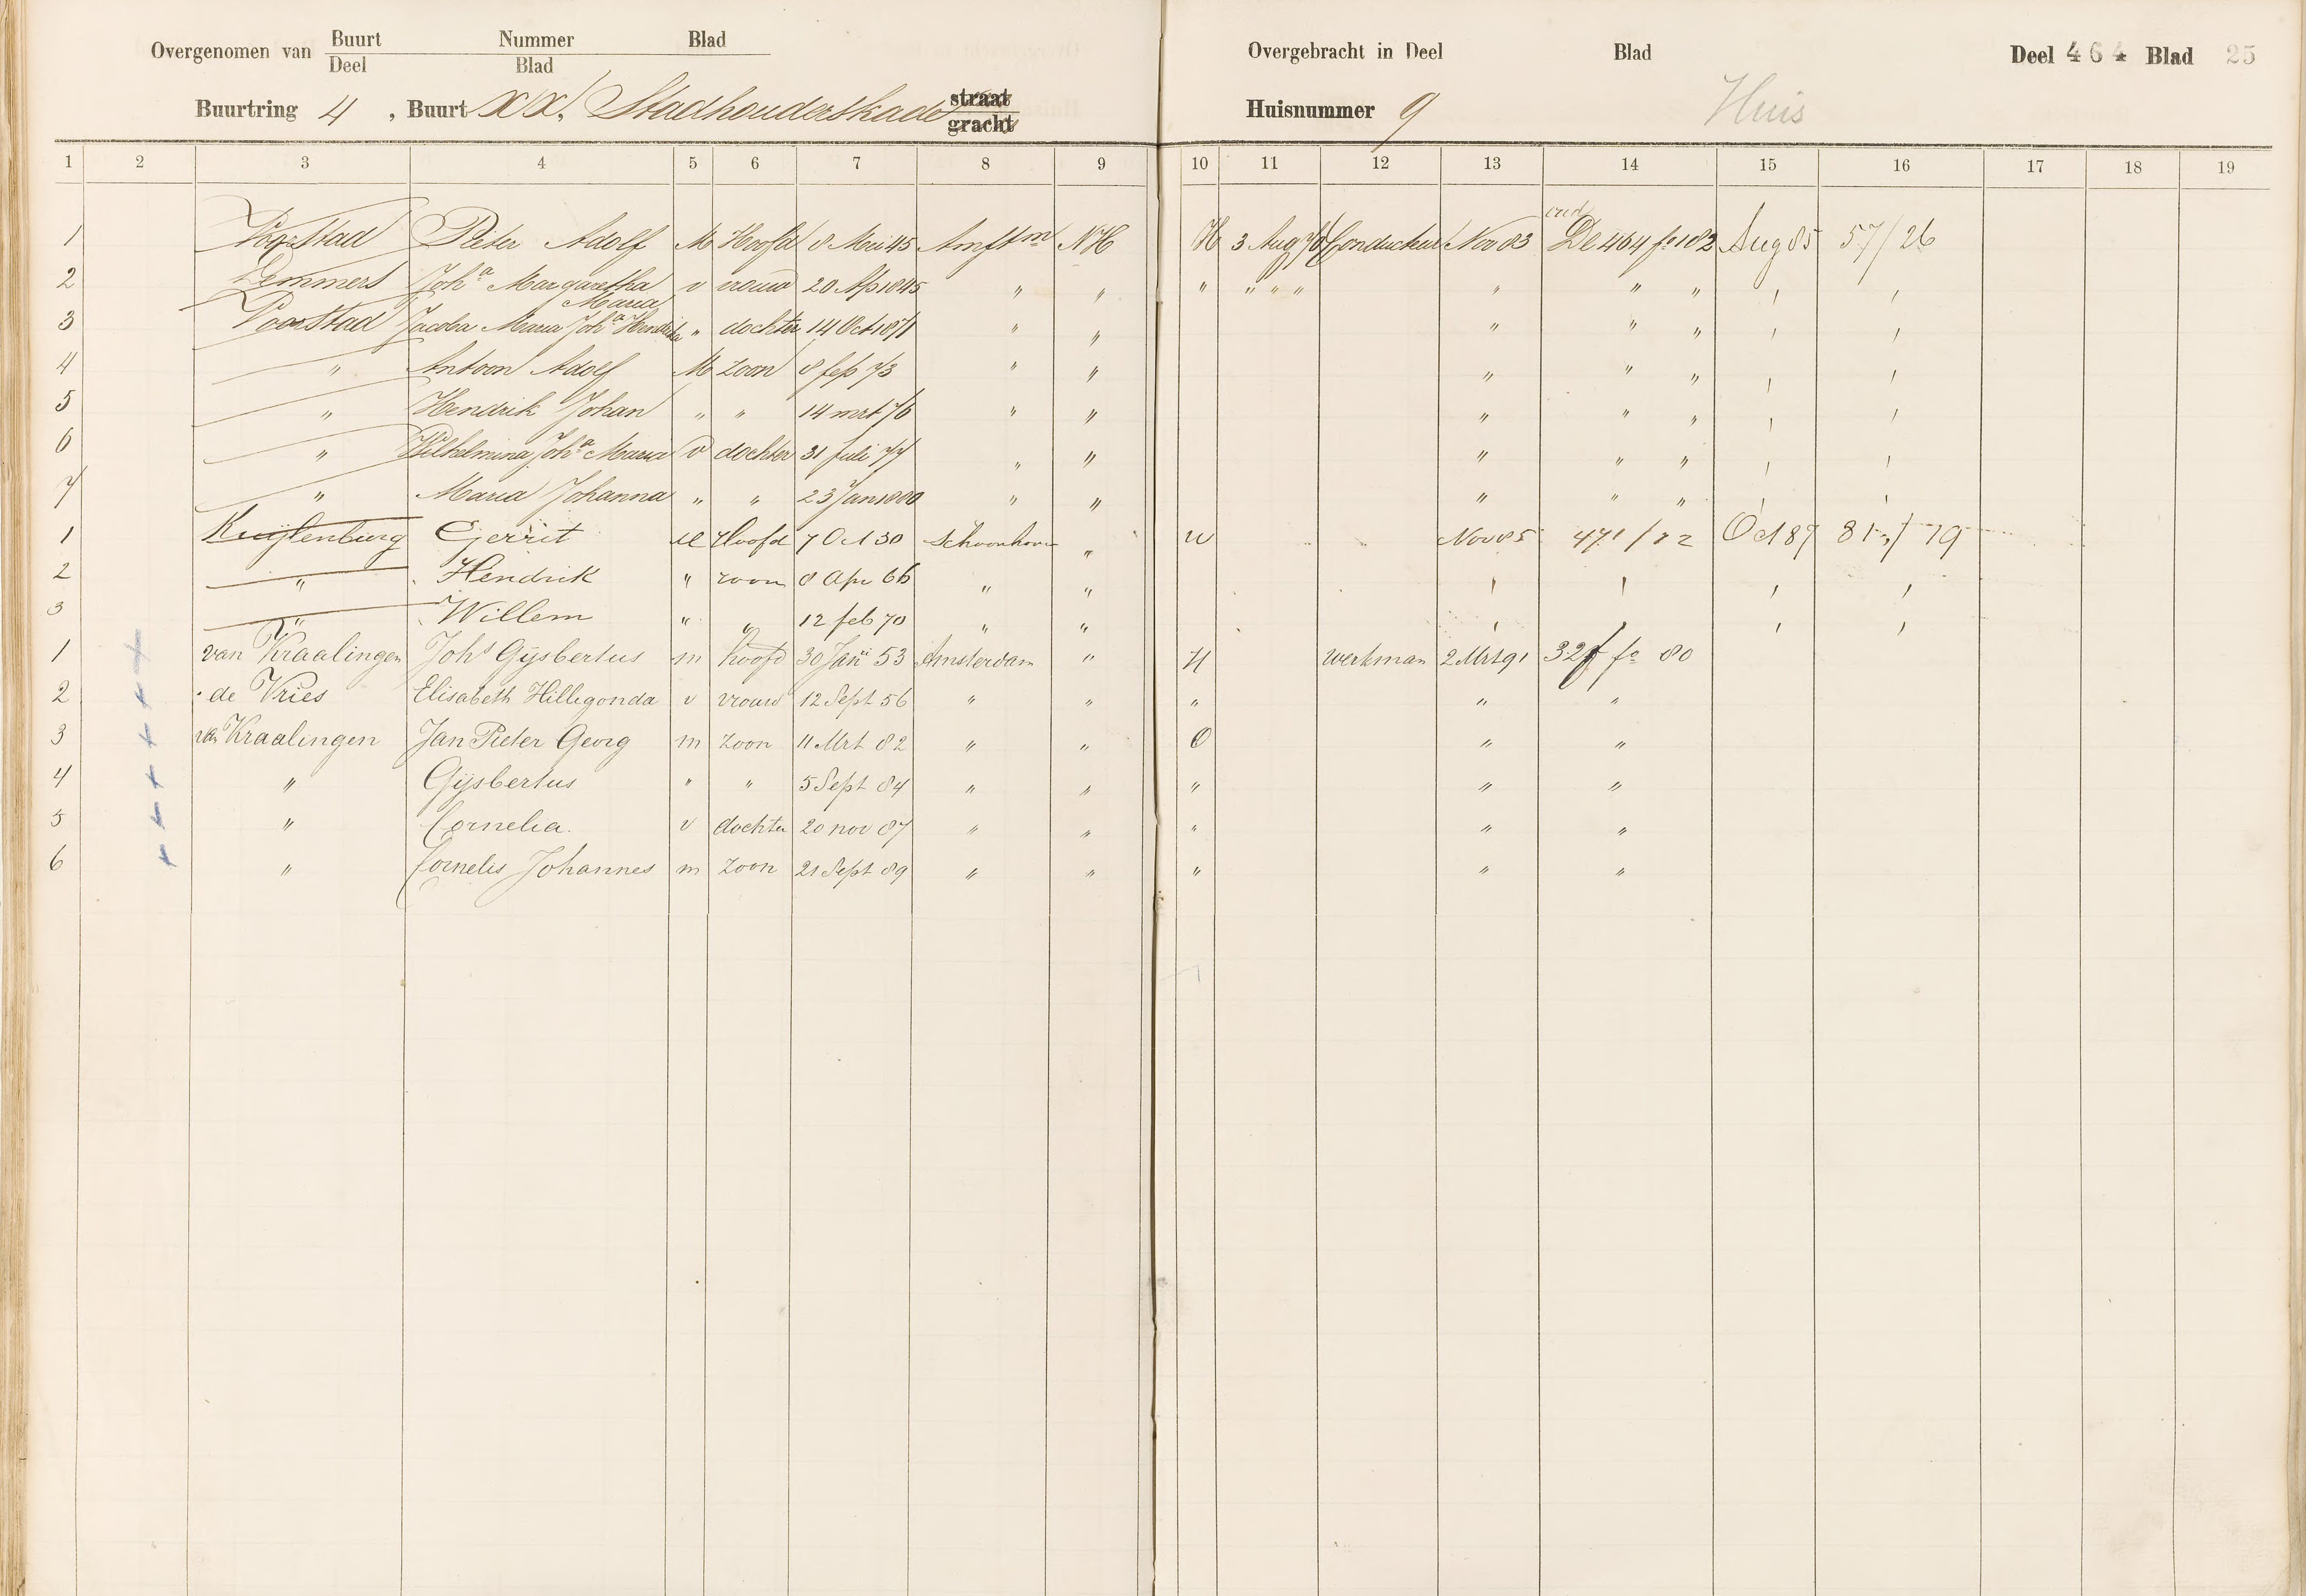 Overgenomen van Buurt Nummer Blad
Deel Blad
Buurtring 4, Buurt XX. Stadhouderskade straat
gracht
Overgebracht in Deel Blad Deel 464 Blad 25
Huisnummer 9 Huis
1 2 3 4 5 6 7 8 9 10 11 12 13 14 15 16 17 18 19
1 Voorstad Pieter Adolf M Hoofd 8 Mei 45 Amstm NH H 3 Aug 70 Conducteur Nov 83 oud Dl 464 fo 182 Aug 85 57/26
2 Lemmers Joha Margaretha Maria v vrouw 20 Ap 1845 " " " " " " " " "
3 Voorstad Jacoba Maria Joha Hendrika " dochter 14 Oct 1871 " " " " "
4 " Antoon Adolf M zoon 8 feb 73 " " " " "
5 " Hendrik Johan " " 14 mrt 76 " " " " "
6 " Wilhelmina Joha Maria v dochter 31 Juli 77 " " " " "
7 " Maria Johanna " " 23 Jan 1880 " " " " "
1 Kuijlenburg Gerrit M Hoofd 7 Oct 30 Schoonhoven " W Nov 85 471/22 Oct 87 81/79
2 " Hendrik " zoon 8 Apr 66 " "
3 " Willem " " 12 feb 70 " "
1 van Kraalingen Johs Gijsbertus m hoofd 30 Jani 53 Amsterdam " H werkman 2 Mrt 91 327 fo 80
2 de Vries Elisabeth Hillegonda v vrouw 12 Sept 56 " " " " "
3 van Kraalingen Jan Pieter Georg m zoon 11 Mrt 82 " " O " "
4 " Gijsbertus " " 5 Sept 84 " " " " "
5 " Cornelia v dochter 20 nov 87 " " " " "
6 " Cornelis Johannes m zoon 21 Sept 89 " " " " "